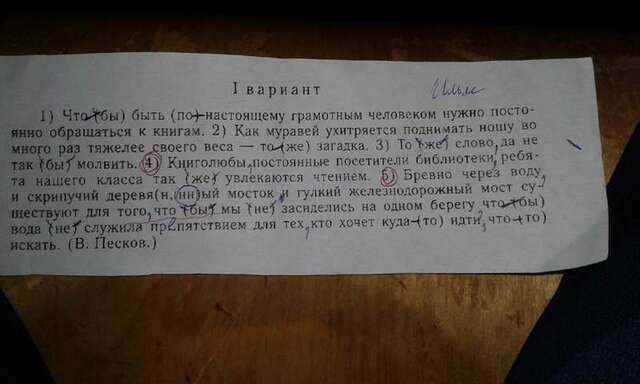 I вариант
1) Что(бы) быть (по)настоящему грамотным человеком нужно посто-
янно обращаться к книгам. 2) Как муравей ухитряется поднимать ношу во
много раз тяжелее своего веса — то(же) загадка. 3) То (же) слово, да не
так (бы) молвить. 4) Книголюбы, постоянные посетители библиотеки, ребя-
та нашего класса так (же) увлекаются чтением. 5) Бревно через воду,
и скрипучий деревя(н,нн)ый мосток и гулкий железнодорожный мост су-
ществуют для того, что (бы) мы (не) засиделись на одном берегу что(бы)
вода (не) служила препятствием для тех, кто хочет куда(то) идти, что(то)
искать. (В. Песков.)